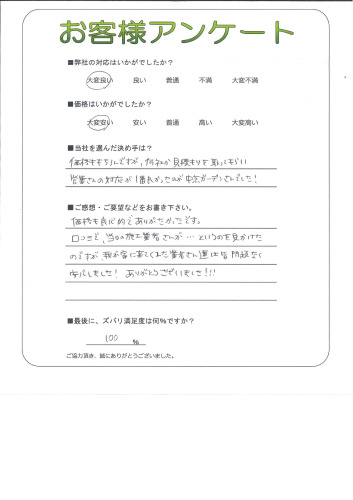 お客様アンケート
■弊社の対応はいかがでしたか？
大変良い 良い 普通 不満 大変不満
■価格はいかがでしたか？
大変安い 安い 普通 高い 大変高い
■当社を選んだ決め手は？
価格ももちろんですが、何社か見積もりを取ってもらい
営業さんの対応が1番良かったのが中京ガーデンさんでした！
■ご感想・ご要望などをお書き下さい。
価格も良心的でありがたかったです。
口コミで、当日の施工業者さんが…というのを見かけた
のですが、我が家に来てくれた業者さん達は皆 問題なく
安心しました！ ありがとうございました！！！
■最後に、ズバリ満足度は何％ですか？
100 ％
ご協力頂き、誠にありがとうございました。